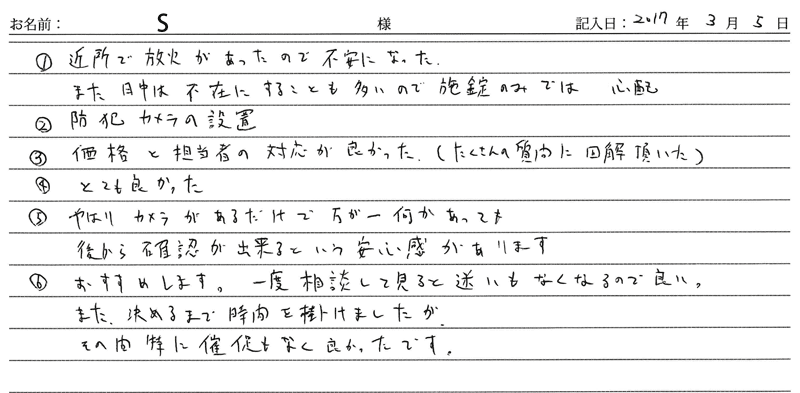 お名前： S 様 記入日：2017 年 3 月 5 日
① 近所で放火があったので不安になった.
また日中は不在にすることも多いので施錠のみでは 心配
② 防犯カメラの設置
③ 価格と担当者の対応が良かった.（たくさんの質問に回解頂いた）
④ とても良かった
⑤ やはりカメラがあるだけで万が一何かあっても
後から確認が出来るという安心感があります
⑥ おすすめします。一度相談して見ると迷いもなくなるので良い。
また、決めるまで時間を掛けましたが、
その間特に催促もなく良かったです。